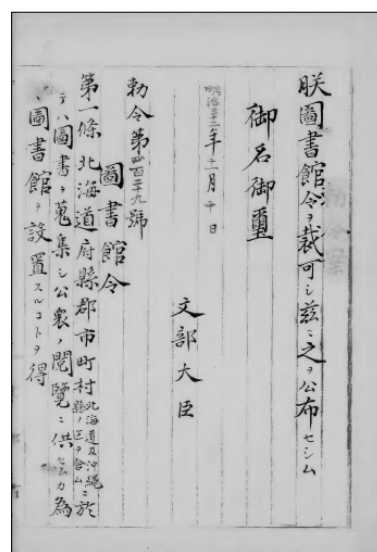 朕圖書館令ヲ裁可シ茲ニ之ヲ公布セシム
御名御璽
明治三十二年十一月十日
文部大臣
勅令第四百二十九號
圖書館令
第一條 北海道府縣郡市町村北海道及沖縄縣ノ區ヲ含ムニ於
テハ圖書ヲ蒐集シ公衆ノ閲覽ニ供センカ為
メ圖書館ヲ設置スルコトヲ得